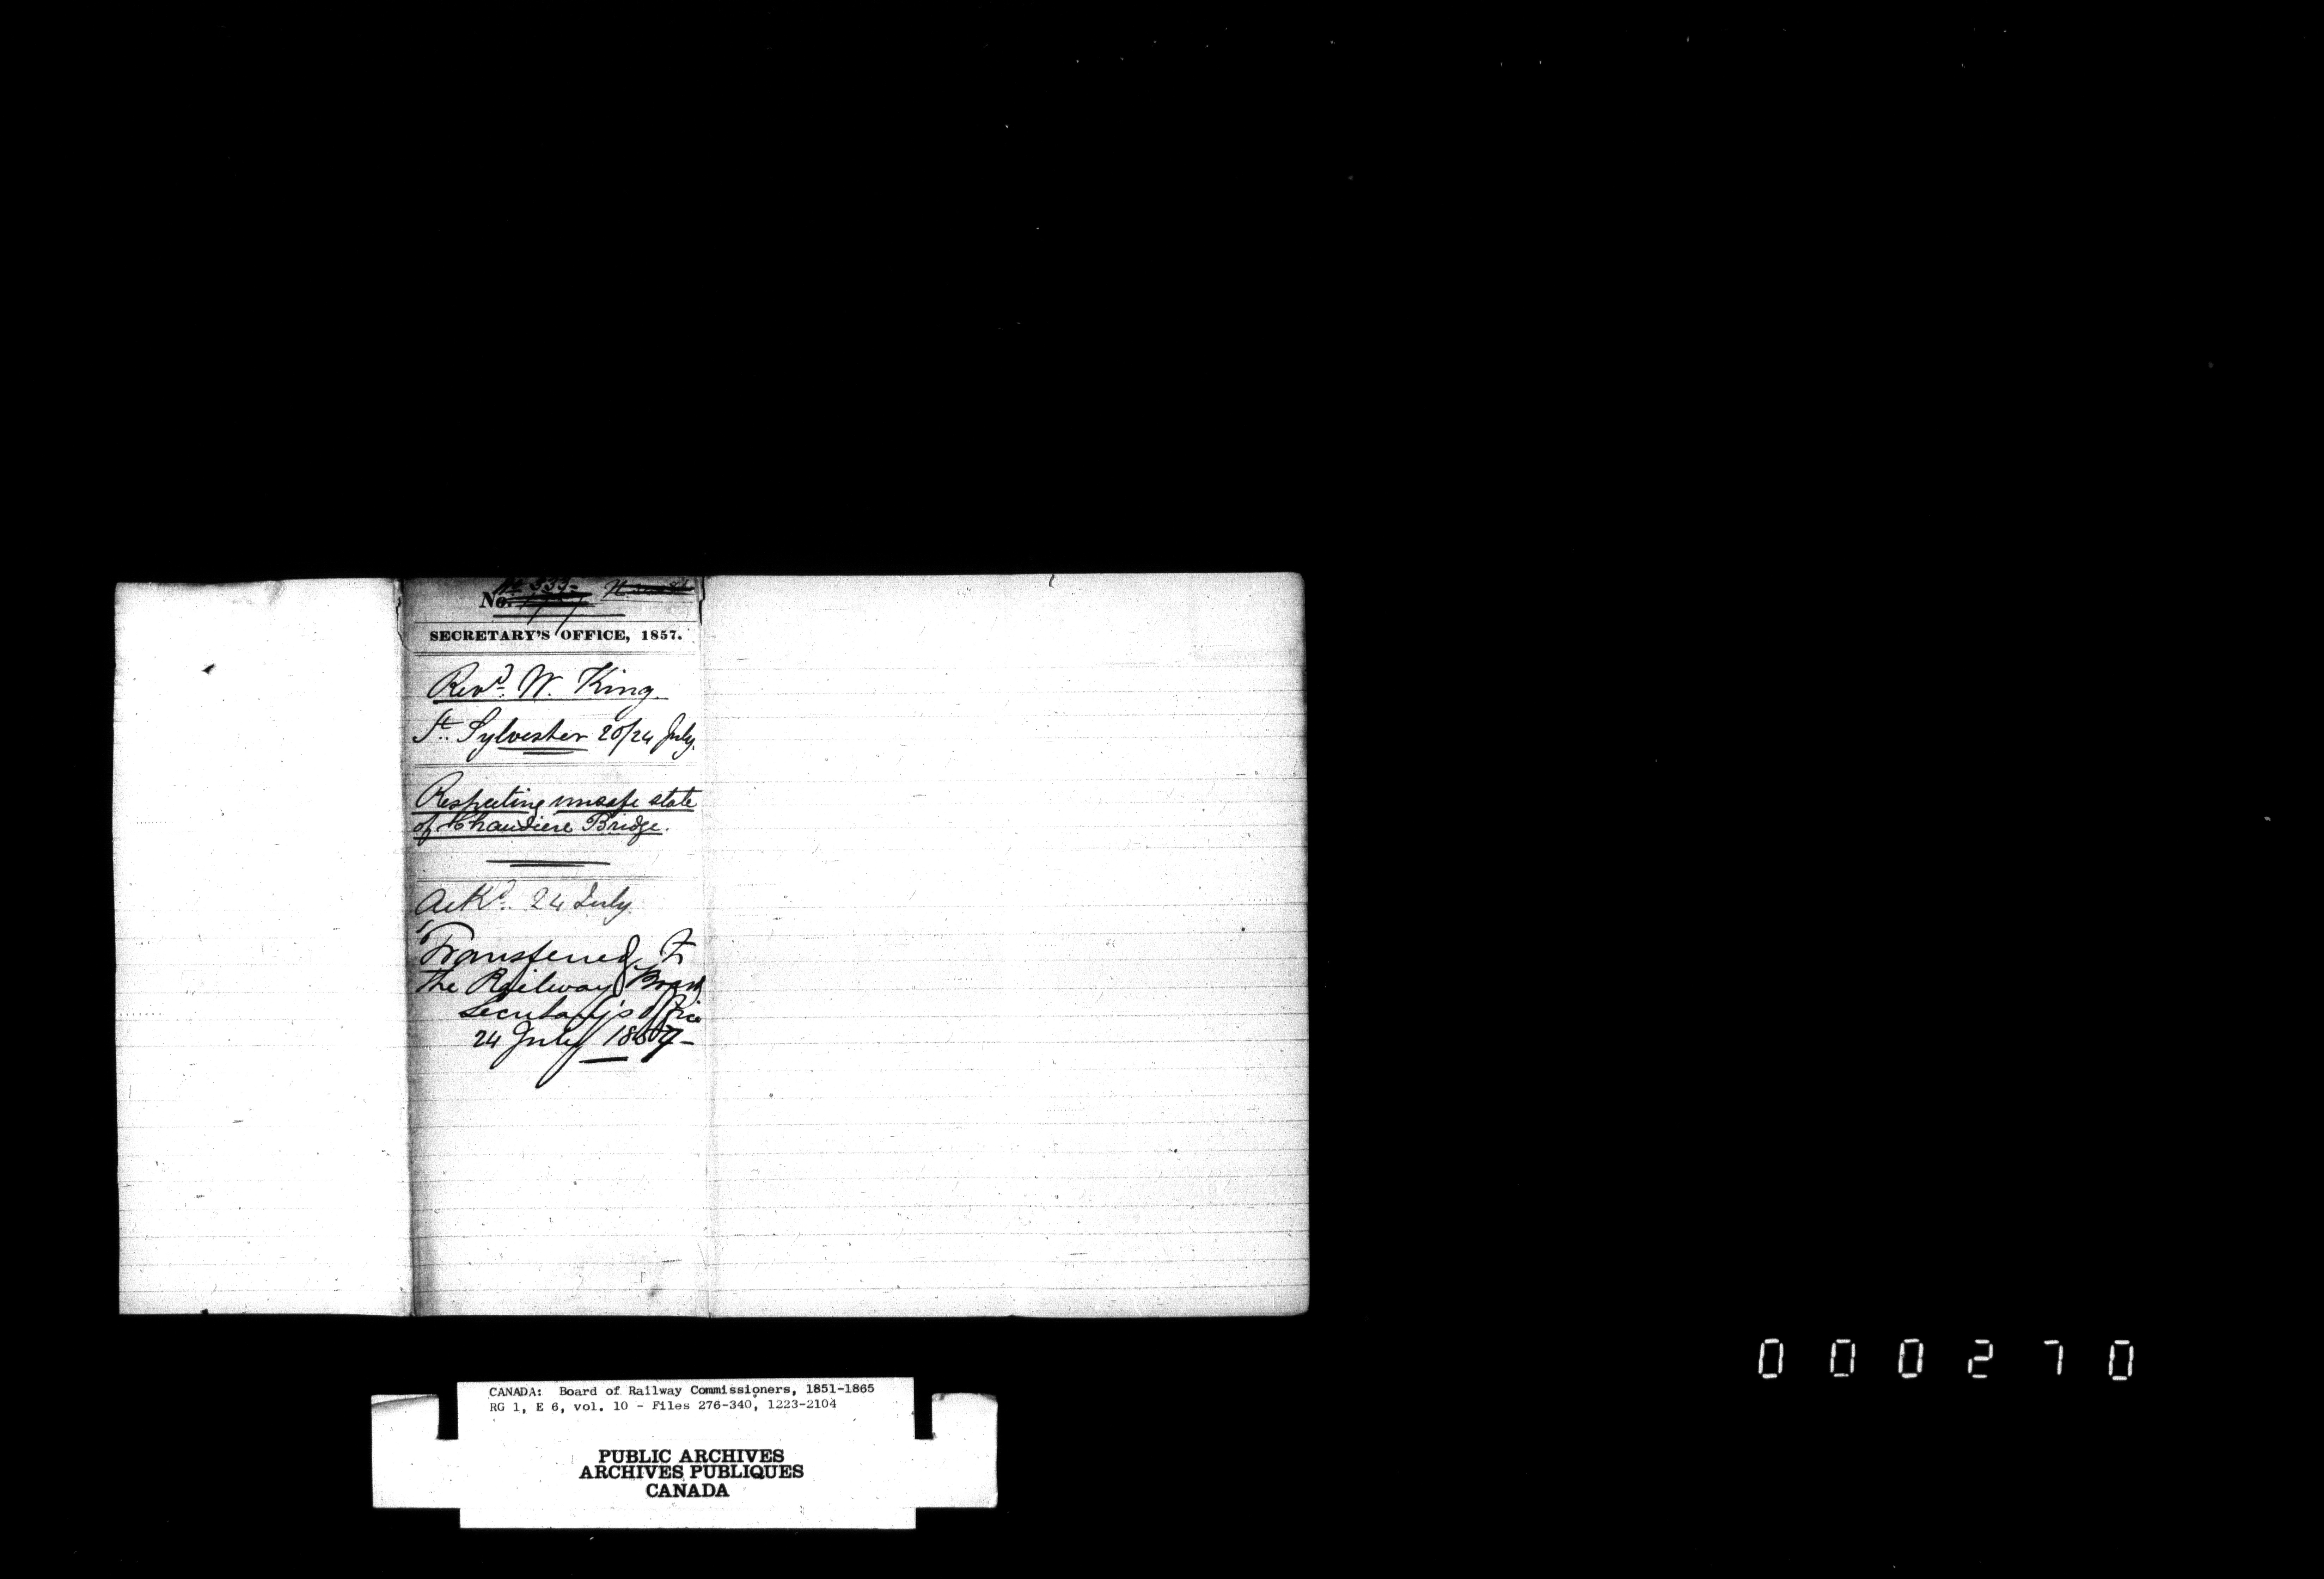 No.
SECRETARY'S OFFICE, 1857.
Revd. W. King.
St. Sylvester 20/24 July.
Respecting unsafe state
of Chaudiere Bridge.
Ackd. 24 July.
Transferred to
the Railway Board
Secretary's Office
24 July 1857-
000270
CANADA: Board of Railway Commissioners, 1851-1865
RG 1, E 6, vol. 10 - Files 276-340, 1223-2104
PUBLIC ARCHIVES
ARCHIVES PUBLIQUES
CANADA